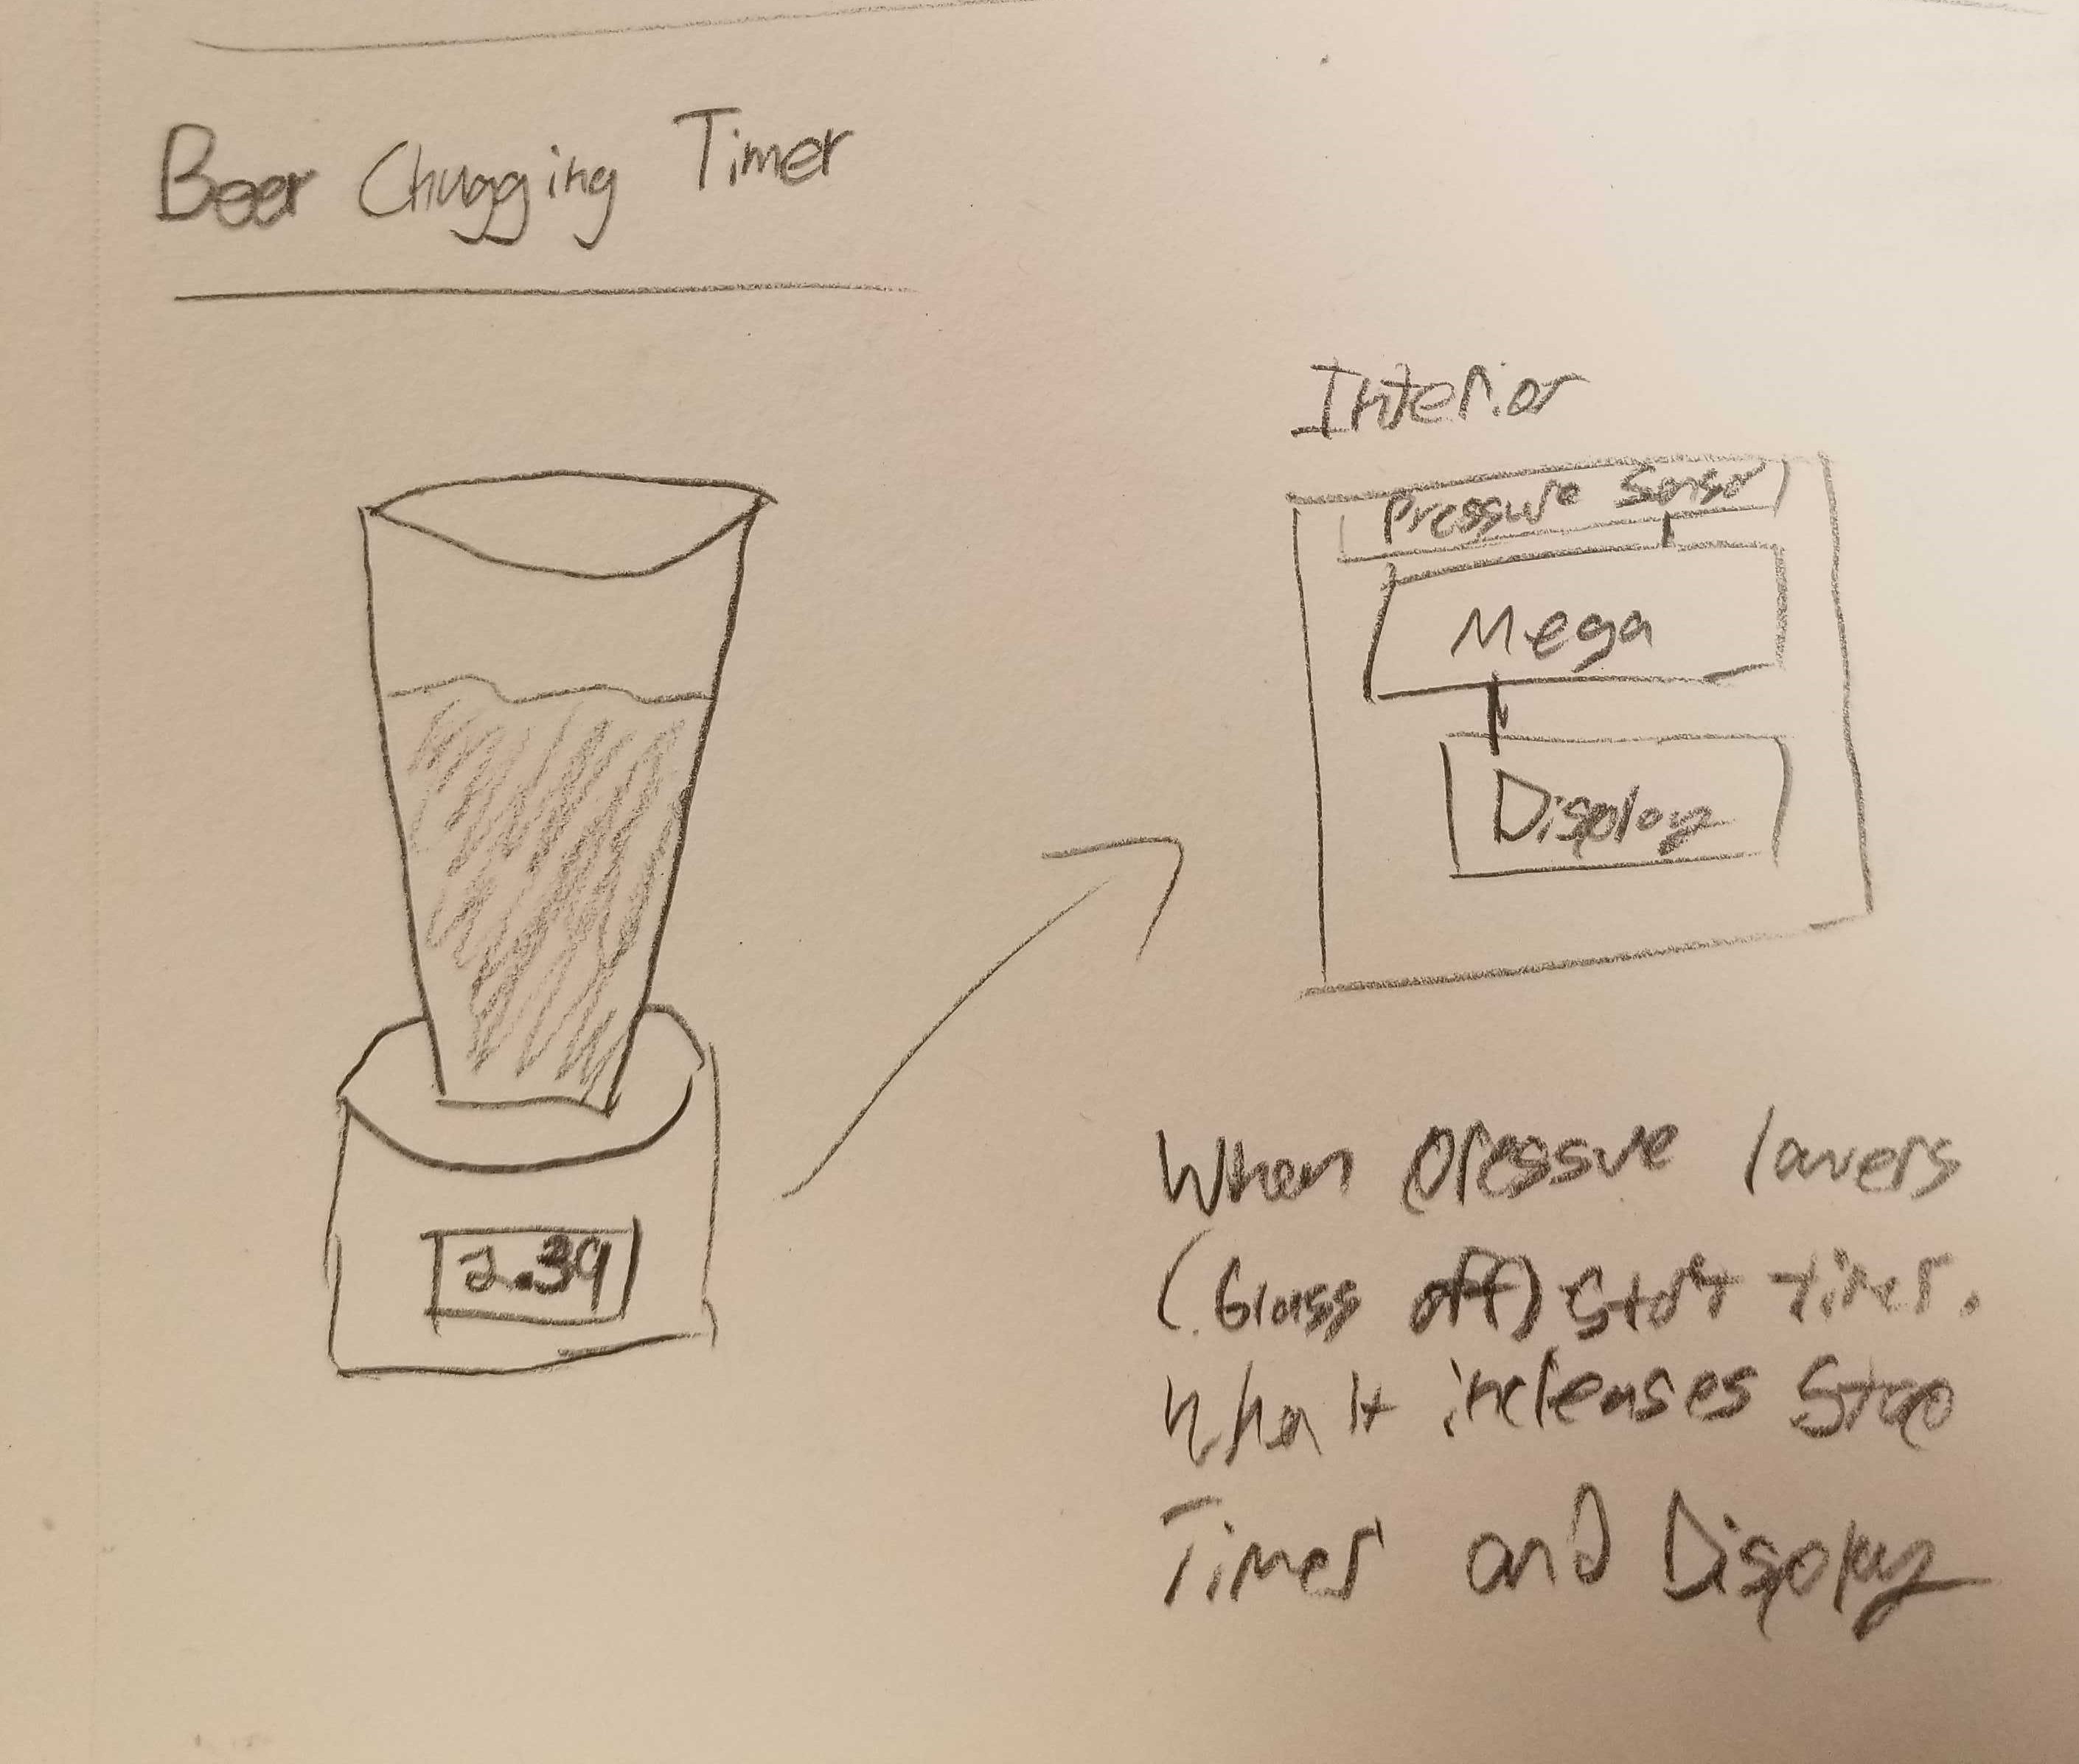 Beer Chugging Timer
Interior
Pressure Sensor
Mega
Display
2.39
When pressure lowers
(Glass off) Start timer.
When it increases Stop
Timer and Display